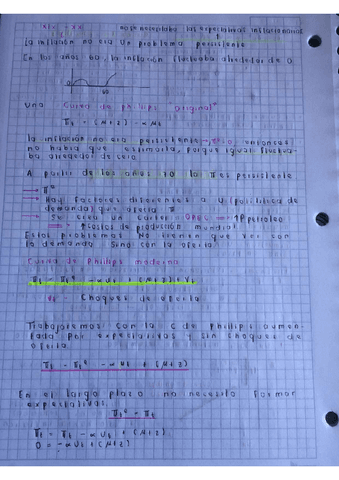 no se necesitaba las expectativas inflacionarias
La inflación no era un problema persistente
En los años 60, la inflación fluctuaba alrededor de 0
60
Una "Curva de Philips original"
πt = (μ+z) - αUt
la inflación no era persistente → entonces
no había que estimarla, porque igual fluctua-
ba alrededor de cero
A partir de los años 70 la π es persistente
→ πe
→ Hay factores diferentes a U (política de
demanda) que afecta π
→ Se creó un cartel OPEC → ↑Petroleo
= ↑costos de producción mundial
Estos problemas no tienen que ver con
la demanda sino con la oferta
Curva de Philips moderna
πt = πte - αUt + (μ+z) + Vt
Vt = Choques de oferta
Trabajaremos con la C de Philips aumen-
tada por expectativas y sin choques de
oferta
πt = πte - αUt + (μ+z)
En el largo plazo no necesito formar
expectativas
πte = πt
πt = πt - αUt + (μ+z)
0 = -αUt + (μ+z)